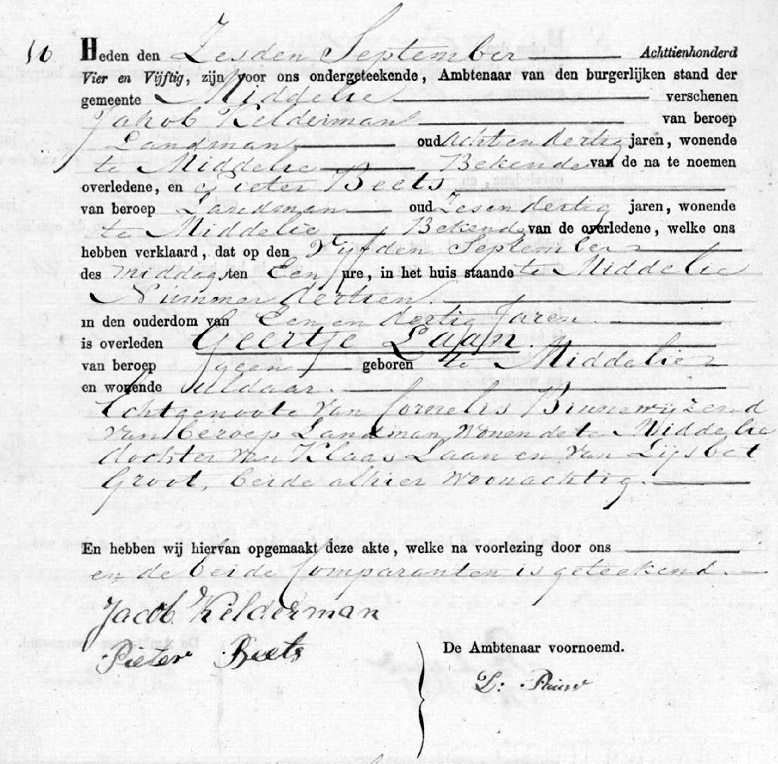 16 Heden den Zesden September Achttienhonderd
Vier en Vijftig, zijn voor ons ondergeteekende, Ambtenaar van den burgerlijken stand der
gemeente Middelie verschenen
Jakob Kelderman van beroep
Landman oud Acht en dertig jaren, wonende
te Middelie Bekende van de na te noemen
overledene, en Pieter Beets
van beroep Landman oud Zesendertig jaren, wonende
te Middelie Bekende van de overledene, welke ons
hebben verklaard, dat op den Vijfden September
des middags ten Een ure, in het huis staande te Middelie
Nummer dertien
in den ouderdom van Een en dertig Jaren
is overleden Geertje Laan
van beroep geen geboren te Middelie
en wonende aldaar.
Echtgenoote van Cornelis Binnewijzend
van beroep Landman wonende te Middelie
dochter van Klaas Laan en van Lijsbet
Groot, beide alhier woonachtig.
En hebben wij hiervan opgemaakt deze akte, welke na voorlezing door ons
en de beide Comparanten is geteekend.
Jacob Kelderman
Pieter Beets
De Ambtenaar voornoemd.